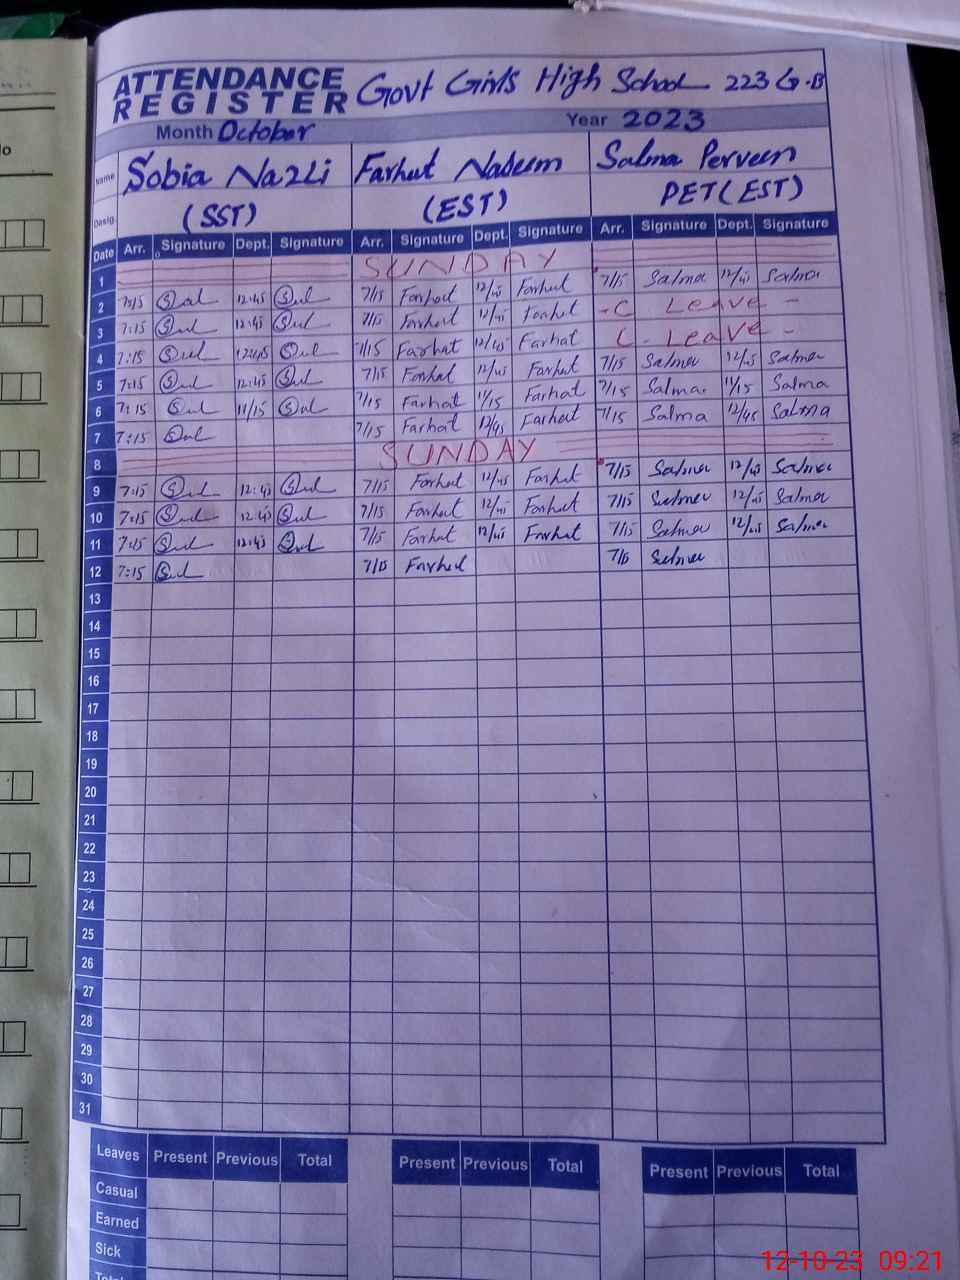 ATTENDANCE REGISTER Govt Girls High School 223 G.B
Month October Year 2023
Name Sobia Nazli Farhat Nadeem Salma Perveen
Desig. (SST) (EST) PET (EST)
Date Arr. Signature Dept. Signature Arr. Signature Dept. Signature Arr. Signature Dept. Signature
1 SUNDAY
2 7:15 12:45 7/15 Farhat 12/45 Farhat 7/15 Salma 12/45 Salma
3 7:15 12:45 7/15 Farhat 12/45 Farhat - C Leave -
4 7:15 7/15 Farhat 12/45 Farhat C. Leave -
5 7:15 12:45 7/15 Farhat 12/45 Farhat 7/15 Salma 12/45 Salma
6 7:15 11/15 7/15 Farhat 11/15 Farhat 7/15 Salma 11/15 Salma
7 7:15 7/15 Farhat 12/45 Farhat 7/15 Salma 12/45 Salma
8 SUNDAY
9 7:15 12:45 7/15 Farhat 12/45 Farhat 7/15 Salma 12/45 Salma
10 7:15 12:45 7/15 Farhat 12/45 Farhat 7/15 Salma 12/45 Salma
11 7:15 12:45 7/15 Farhat 12/45 Farhat 7/15 Salma 12/45 Salma
12 7:15 7/15 Farhat 7/15 Salma
13
14
15
16
17
18
19
20
21
22
23
24
25
26
27
28
29
30
31
Leaves Present Previous Total Present Previous Total Present Previous Total
Casual
Earned
Sick
12-10-23 09:21